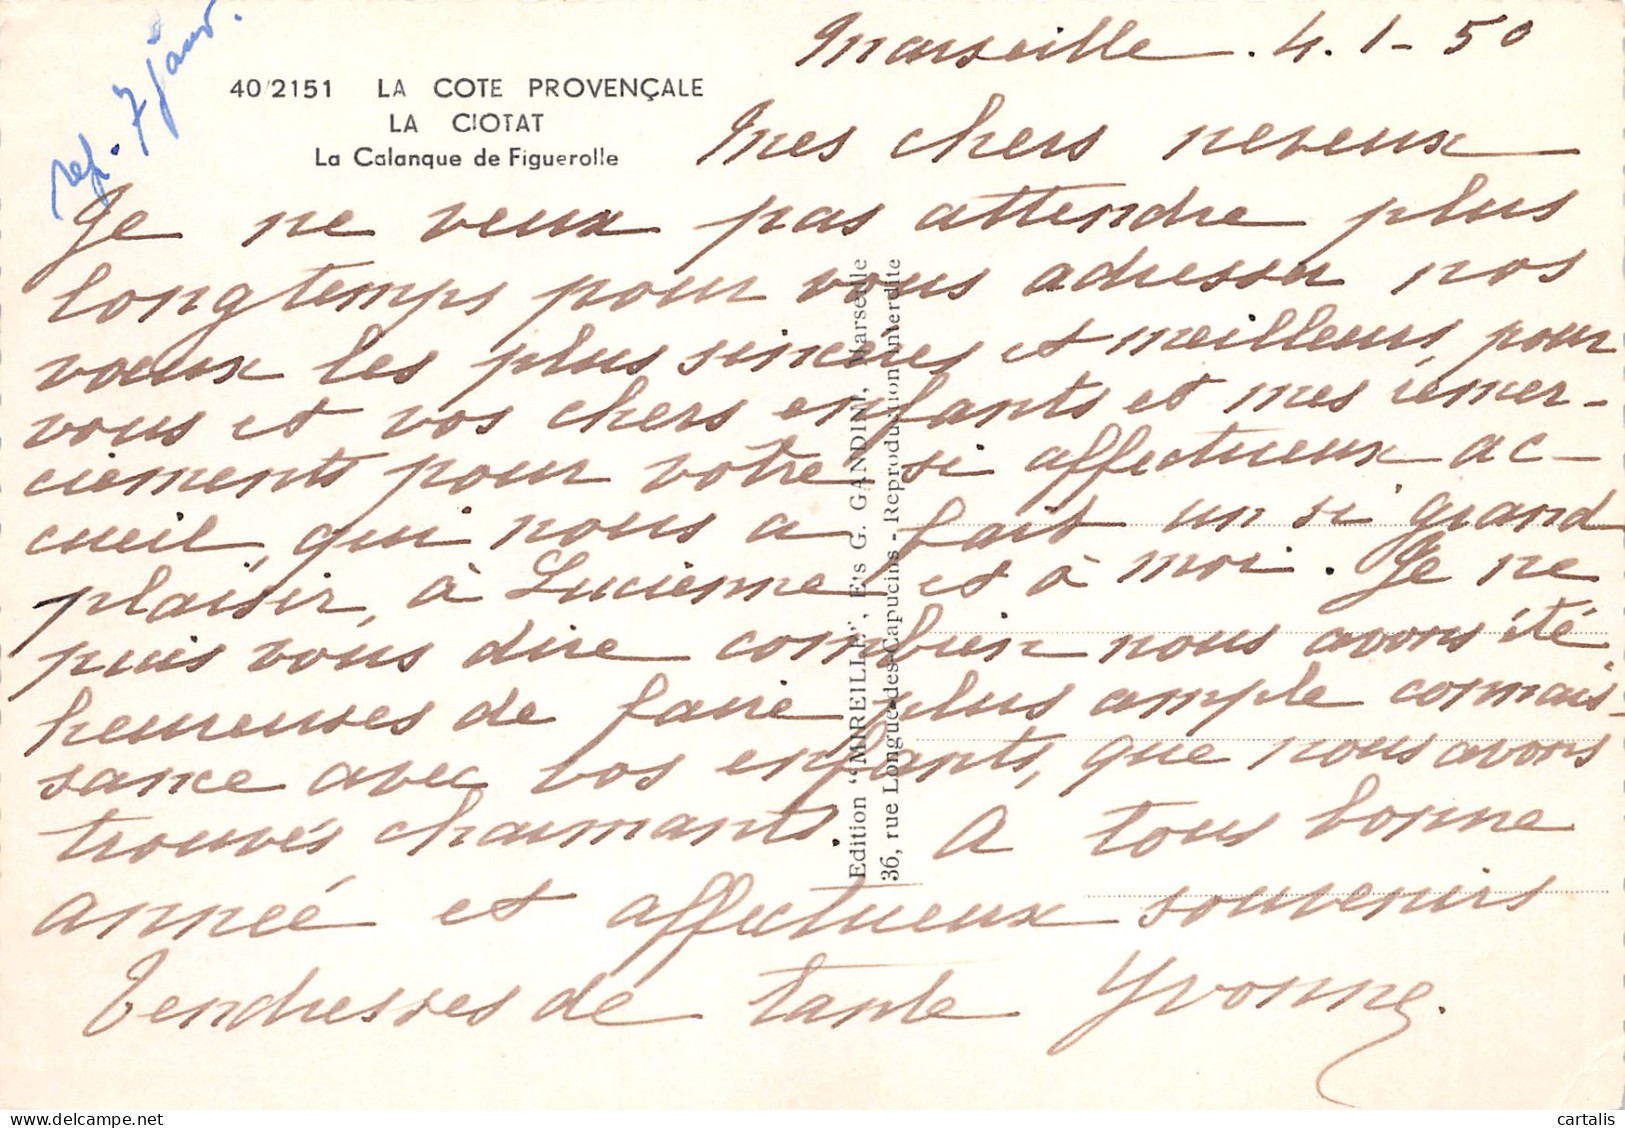 rép. 7 janv.
40/2151 LA COTE PROVENÇALE
LA CIOTAT
La Calanque de Figuerolle
Marseille. 4. 1 - 50
Mes chers neveux
Je ne veux pas attendre plus
longtemps pour vous adresser nos
vœux les plus sincères et meilleurs, pour
vous et vos chers enfants et mes remer-
ciements pour votre si affectueux ac-
cueil, qui nous a fait un si grand
plaisir, à Lucienne et à moi. Je ne
puis vous dire combien nous avons été
heureuses de faire plus ample connais-
sance avec vos enfants, que nous avons
trouvés charmants. A tous bonne
année et affectueux souvenirs
Tendresses de tante Yvonne.
Edition "MIREILLE", Ets G. GANDINI, Marseille
36, rue Longue-des-Capucins - Reproduction interdite
cartalis